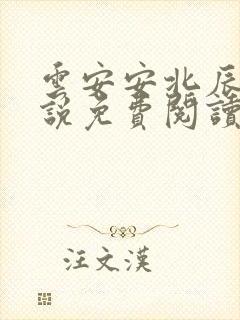 雲安安北辰
說免費閱讀
汪文漢